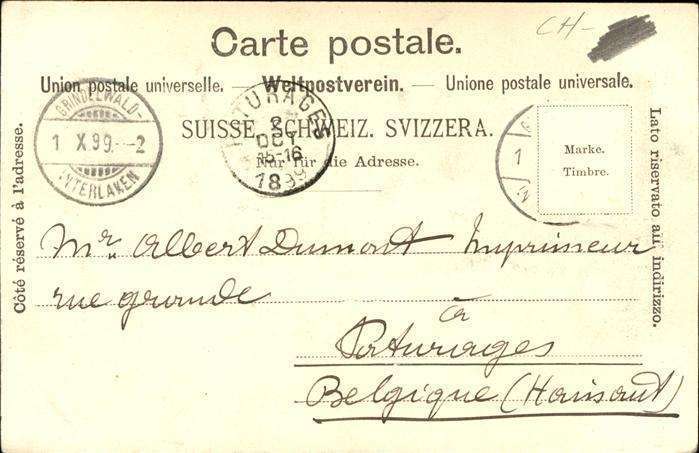 CH-
Carte postale.
Union postale universelle. — Weltpostverein. — Unione postale universale.
SUISSE. SCHWEIZ. SVIZZERA.
Nur für die Adresse.
GRINDELWALD-
1 X 99.-2
INTERLAKEN
PATURAGES
2
OCT
15-16
1899
1
Marke.
Timbre.
Côté réservé à l'adresse.
Lato riservato all' indirizzo.
Mr. Albert Dumont Imprimeur
rue grande
à
Paturages
Belgique (Hainaut)